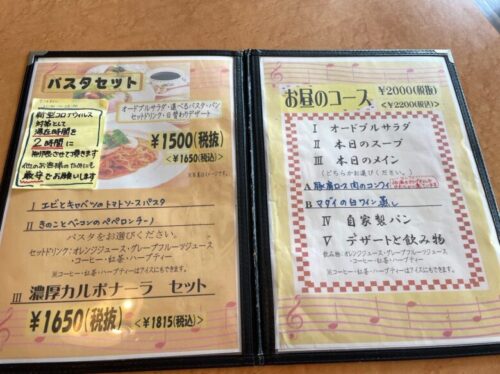 パスタセット
オードブルサラダ・選べるパスタ・パン
セットドリンク・日替わりデザート
新型コロナウイルス
対策として
滞在時間を
2時間に
制限させて頂きます
他のお客様のためにも
厳守でお願いします
¥1500(税抜)
<¥1650(税込)>
I エビとキャベツのトマトソースパスタ
II きのことベーコンのペペロンチーノ
パスタをお選びください。
セットドリンク:オレンジジュース・グレープフルーツジュース
・コーヒー・紅茶・ハーブティー
※コーヒー・紅茶・ハーブティーはアイスにもできます。
III 濃厚カルボナーラ セット
¥1650(税抜) <¥1815(税込)>
お昼のコース ¥2000(税抜)
<¥2200(税込)>
I オードブルサラダ
II 本日のスープ
III 本日のメイン
(どちらかお選びください。)
A 豚肩ロース肉のコンフィ
B マダイの白ワイン蒸し
IV 自家製パン
V デザートと飲み物
飲み物:オレンジジュース・グレープフルーツジュース
・コーヒー・紅茶・ハーブティー
※コーヒー・紅茶・ハーブティーはアイスにもできます。